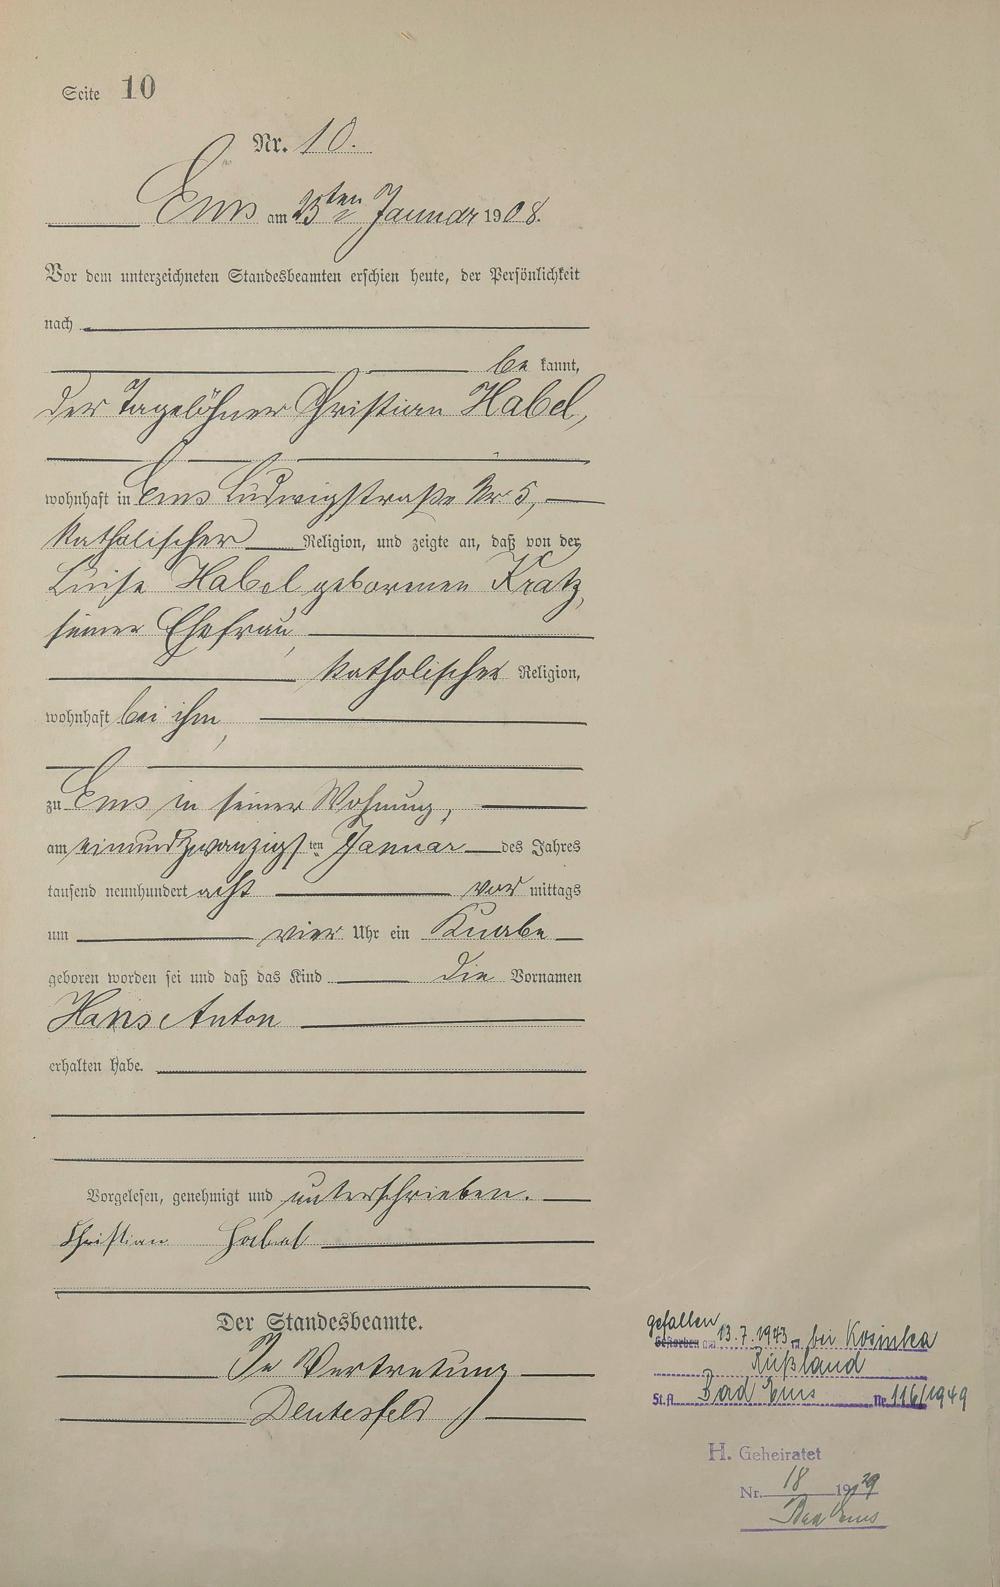 Seite 10
Nr. 10.
Ems am 23ten Januar 1908.
Vor dem unterzeichneten Standesbeamten erschien heute, der Persönlichkeit
nach
be kannt,
der Tagelöhner Christian Habel,
wohnhaft in Ems Ludwigstraße Nr. 5,
katholischer Religion, und zeigte an, daß von der
Luise Habel geborenen Kratz,
seiner Ehefrau,
katholischer Religion,
wohnhaft bei ihm,
zu Ems in seiner Wohnung,
am einundzwanzigsten Januar des Jahres
tausend neunhundert acht vor mittags
um vier Uhr ein Knabe
geboren worden sei und daß das Kind die Vornamen
Hans Anton
erhalten habe.
Vorgelesen, genehmigt und unterschrieben.
Christian Habel
Der Standesbeamte.
In Vertretung
gefallen
Gestorben am 13.7.1943 in bei Kosinka
Rußland
St.A. Bad Ems Nr. 116/1949
H. Geheiratet
Nr. 18 1929
Bad Ems